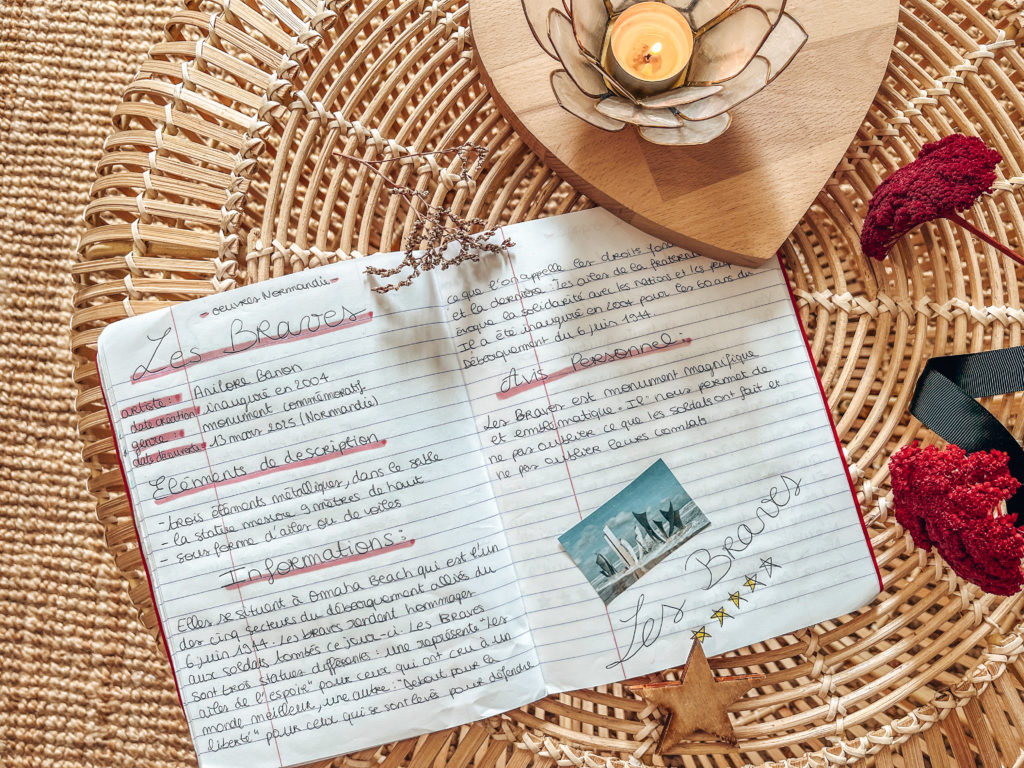 - oeuvres Normandie -
Les Braves
artiste : Anilore Banon
date création : inauguré en 2004
genre : monument commémoratif
date de visite : 13 mars 2025 (Normandie)
Eléments de description
- trois éléments métalliques, dans le sable
- la statue mesure 9 mètres de haut
- sous forme d'ailes ou de voiles
Informations :
Elles se situant à Omaha Beach qui est l'un
des cinq secteurs du débarquement alliés du
6 juin 1944. Les braves rendent hommages
aux soldats tombés ce jour-ci. Les Braves
sont trois statues différentes : une représente "les
ailes de l'espoir" pour ceux qui ont cru à un
monde meilleur, une autre : "Debout pour la
liberté" pour celui qui se sont levés pour défendre
ce que l'on appelle les droits
et la dernière : "les ailes de la fraternité"
évoque la solidarité avec les nations et les
Il a été inauguré en 2004 pour les 60 ans du
Débarquement du 6 juin 1944
Avis Personnel :
Les Braves est monument magnifique
et emblématique. Il nous permet de
ne pas oublier ce que les soldats ont fait et
ne pas oublier leurs combats
Les Braves